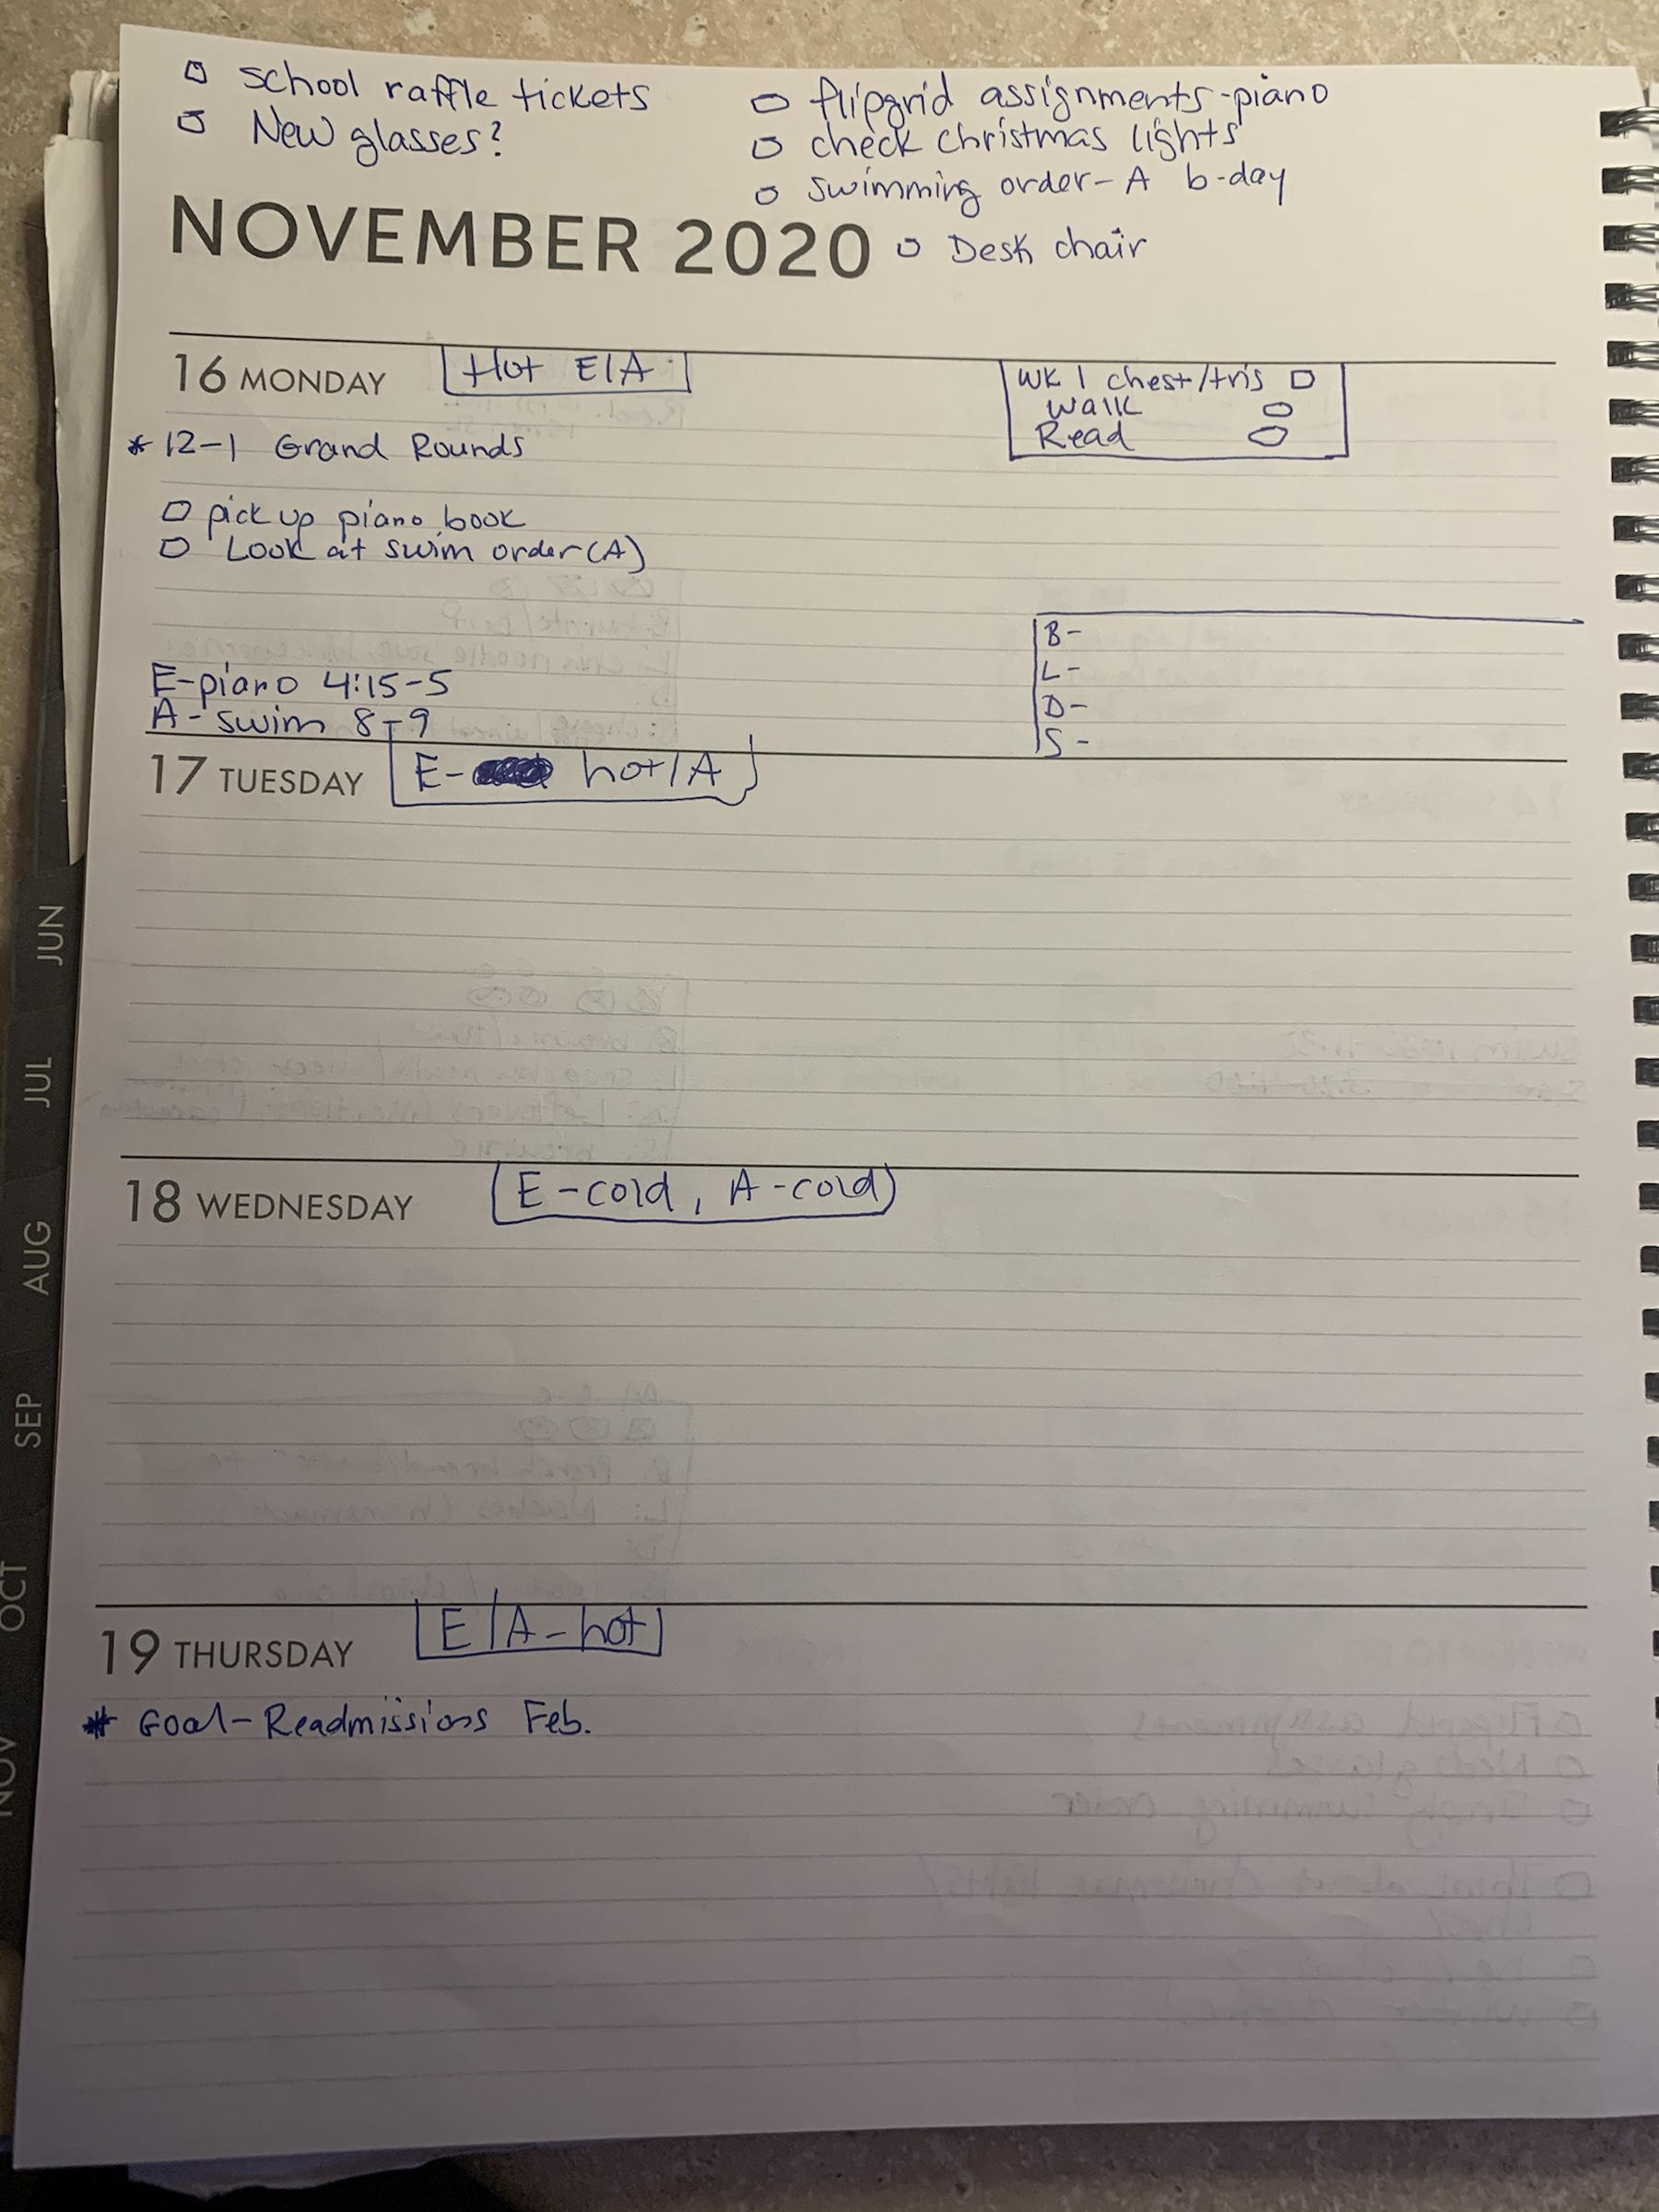 school raffle tickets
New glasses?
flipgrid assignments-piano
check christmas lights
swimming order-A b-day
NOVEMBER 2020
Desk chair
16 MONDAY
Hot E/A
WK 1 chest/tris
Walk
Read
* 12-1 Grand Rounds
pick up piano book
Look at swim order (A)
B-
L-
D-
S-
E-piano 4:15-5
A-swim 8-9
17 TUESDAY
E- hot/A
18 WEDNESDAY
E-cold, A-cold
19 THURSDAY
E/A-hot
* Goal-Readmissions Feb.
JUN
JUL
AUG
SEP
OCT
NOV